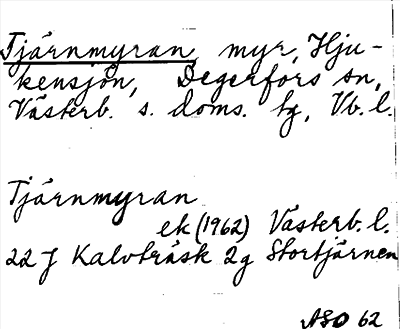 Tjärnmyran, myr, Hju-
kensjön, Degerfors sn,
Västerb. s. doms. tg, Vb. l.
Tjärnmyran
ek (1962) Västerb. l.
22 J Kalvträsk 2g Stortjärnen
ASO 62